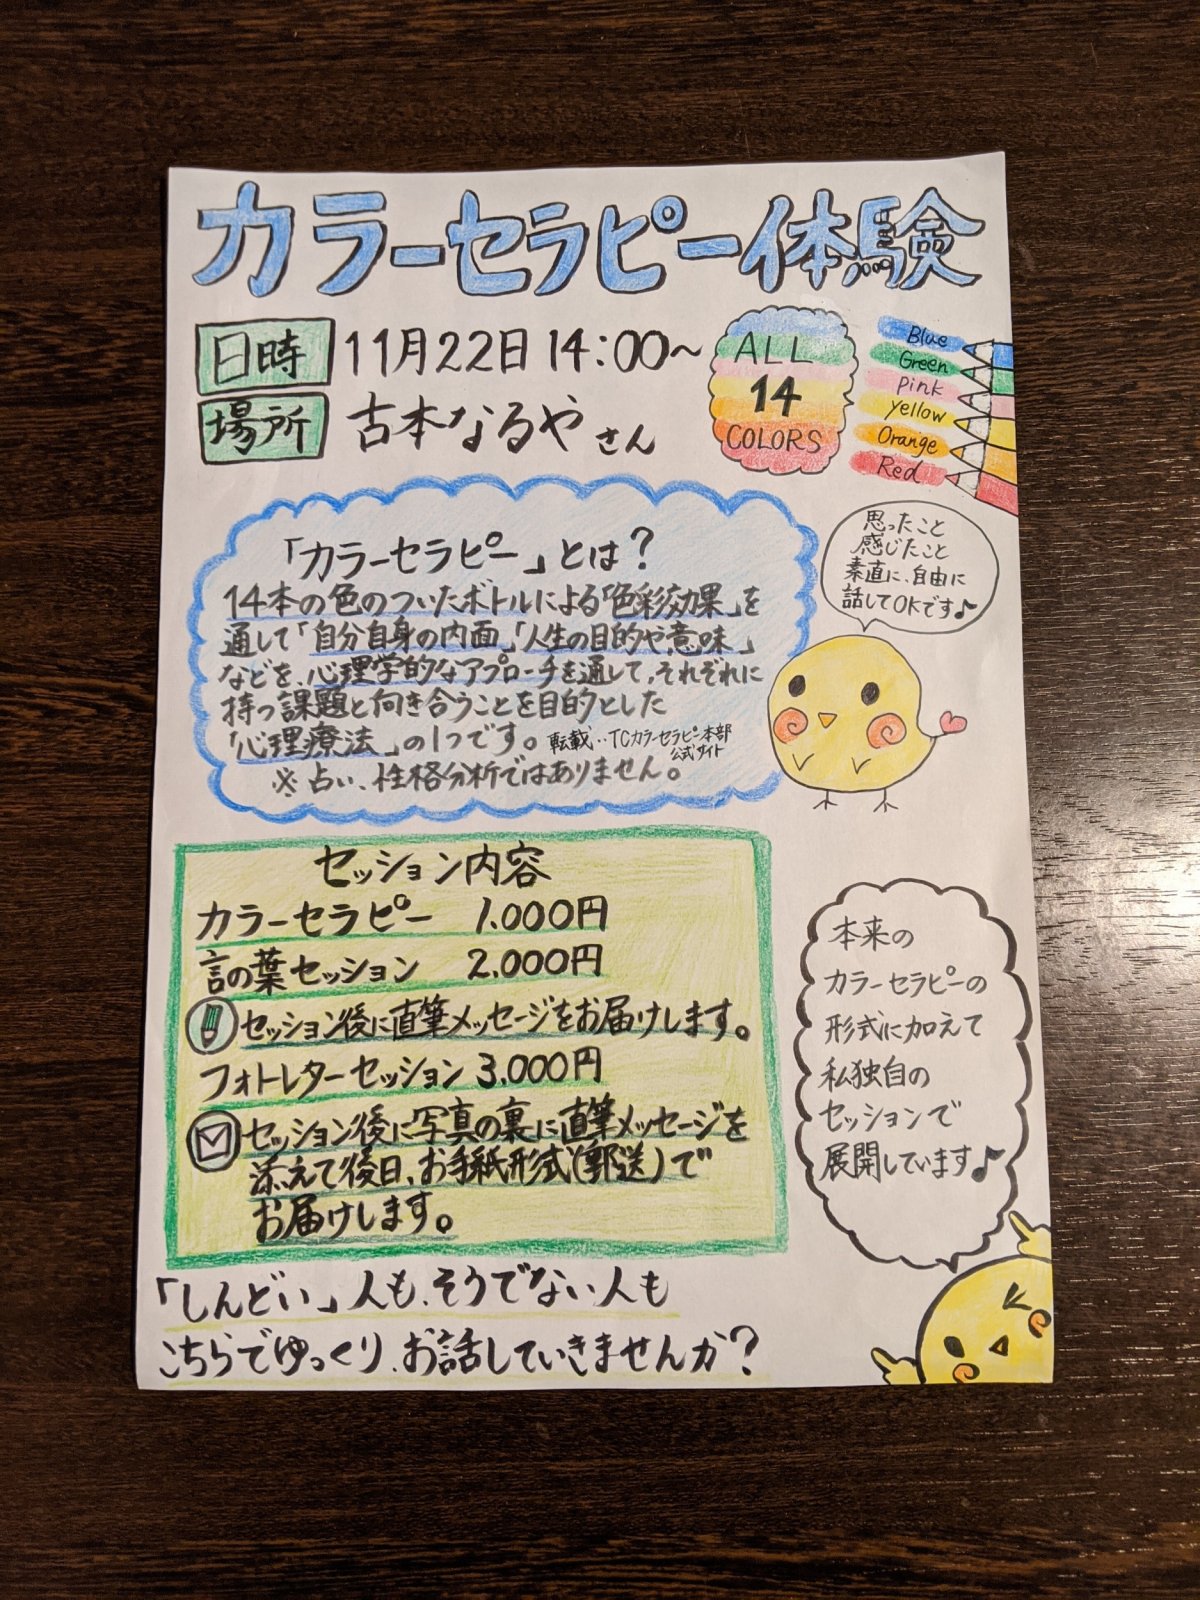 カラーセラピー体験
日時 11月22日 14:00〜
場所 古本なるや さん
ALL
14
COLORS
Blue
Green
Pink
Yellow
Orange
Red
「カラーセラピー」とは?
14本の色のついたボトルによる「色彩効果」を
通して「自分自身の内面」「人生の目的や意味」
などを、心理学的なアプローチを通して、それぞれに
持つ課題と向き合うことを目的とした
「心理療法」の1つです。 転載…TCカラーセラピー本部
公式サイト
※占い、性格分析ではありません。
思ったこと
感じたこと
素直に、自由に
話してOKです♪
セッション内容
カラーセラピー 1.000円
言の葉セッション 2.000円
セッション後に直筆メッセージをお届けします。
フォトレターセッション 3.000円
セッション後に写真の裏に直筆メッセージを
添えて後日、お手紙形式(郵送)で
お届けします。
本来の
カラーセラピーの
形式に加えて
私独自の
セッションで
展開しています♪
「しんどい」人も、そうでない人も
こちらでゆっくり、お話していきませんか?